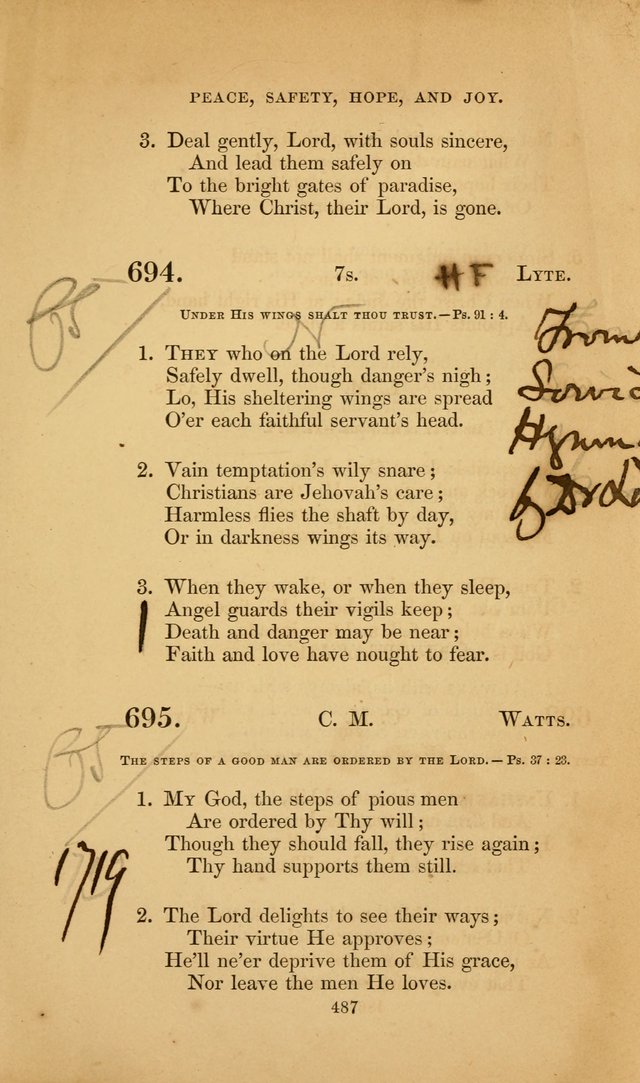 PEACE, SAFETY, HOPE, AND JOY.
3. Deal gently, Lord, with souls sincere,
And lead them safely on
To the bright gates of paradise,
Where Christ, their Lord, is gone.
694. 7s. H F LYTE.
UNDER HIS WINGS SHALT THOU TRUST.—Ps. 91 : 4.
N
From
1. THEY who on the Lord rely,
Safely dwell, though danger's nigh;
Lo, His sheltering wings are spread
O'er each faithful servant's head.
Hymn
by Dr
2. Vain temptation's wily snare;
Christians are Jehovah's care;
Harmless flies the shaft by day,
Or in darkness wings its way.
3. When they wake, or when they sleep,
Angel guards their vigils keep;
Death and danger may be near;
Faith and love have nought to fear.
695. C. M. WATTS.
THE STEPS OF A GOOD MAN ARE ORDERED BY THE LORD.—Ps. 37 : 23.
1. MY God, the steps of pious men
Are ordered by Thy will;
Though they should fall, they rise again;
Thy hand supports them still.
1719
2. The Lord delights to see their ways;
Their virtue He approves;
He'll ne'er deprive them of His grace,
Nor leave the men He loves.
487